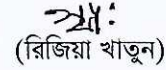 (রিজিয়া খাতুন)